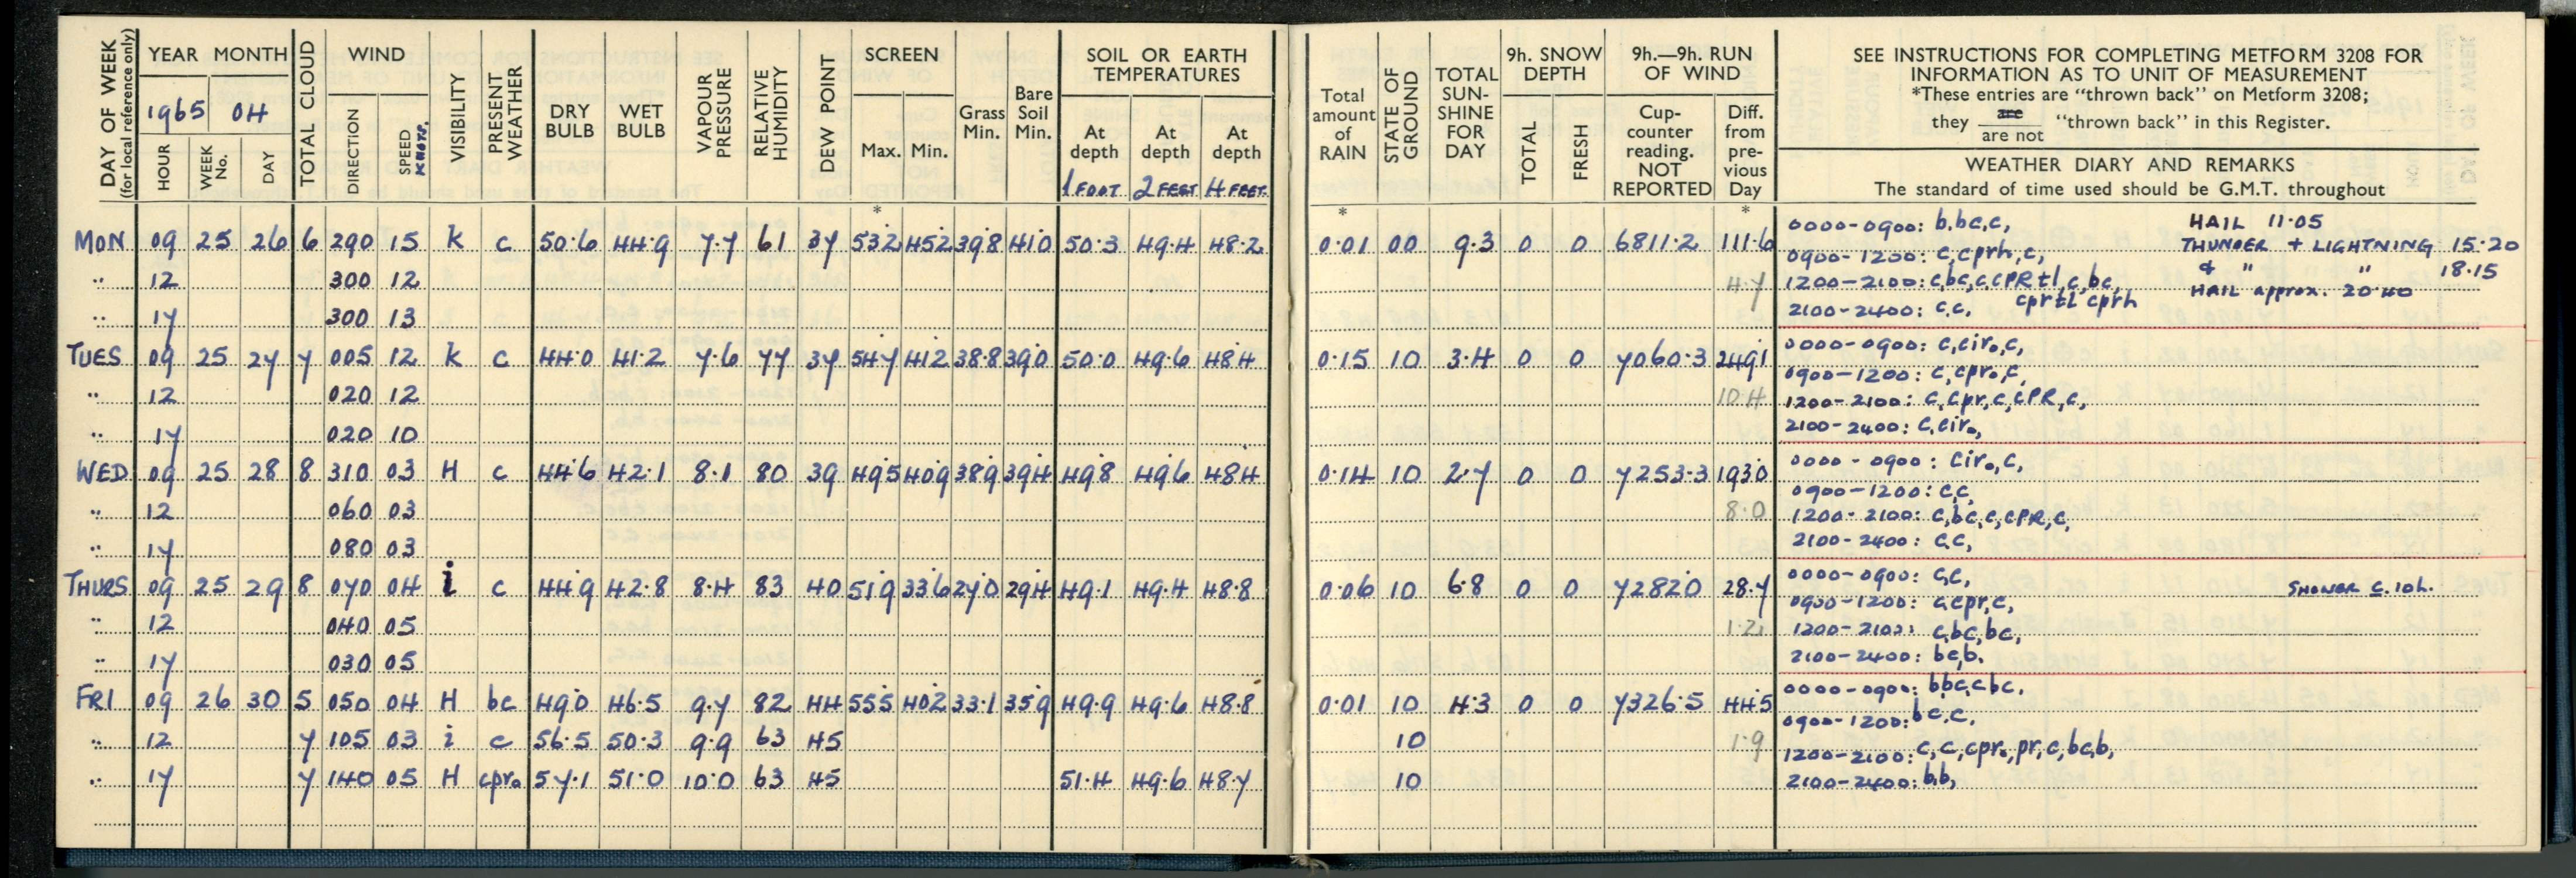 DAY OF WEEK (for local reference only) YEAR MONTH TOTAL CLOUD WIND VISIBILITY PRESENT WEATHER DRY BULB WET BULB VAPOUR PRESSURE RELATIVE HUMIDITY DEW POINT SCREEN Grass Min. Bare Soil Min. SOIL OR EARTH TEMPERATURES
1965 04
HOUR WEEK No. DAY DIRECTION SPEED KNOTS. Max. Min. At depth At depth At depth
1 FOOT 2 FEET 4 FEET
Total amount of RAIN STATE OF GROUND TOTAL SUN-SHINE FOR DAY 9h. SNOW DEPTH 9h.—9h. RUN OF WIND
TOTAL FRESH Cup-counter reading. NOT REPORTED Diff. from pre-vious Day
SEE INSTRUCTIONS FOR COMPLETING METFORM 3208 FOR
INFORMATION AS TO UNIT OF MEASUREMENT
*These entries are "thrown back" on Metform 3208;
they are / are not "thrown back" in this Register.
WEATHER DIARY AND REMARKS
The standard of time used should be G.M.T. throughout
* * *
MON 09 25 26 6 290 15 k c 50.6 44.9 7.7 61 37 53.2 45.2 39.8 41.0 50.3 49.4 48.2 0.01 00 9.3 0 0 6811.2 111.6
0000-0900: b,bc,c,
HAIL 11.05
THUNDER + LIGHTNING 15.20
0900-1200: c,cprh,c,
& " " 18.15
" 12 300 12 4.7
1200-2100: c,bc,c,cPRtl,c,bc,
HAIL approx. 20.40
cprtl cprh
" 17 300 13
2100-2400: c,c,
TUES 09 25 27 7 005 12 k c 44.0 41.2 7.6 77 37 54.7 41.2 38.8 39.0 50.0 49.6 48.4 0.15 10 3.4 0 0 7060.3 249.1
0000-0900: c,cir₀,c,
0900-1200: c,cpr₀,c,
" 12 020 12 10.4
1200-2100: c,cpr,c,cPR,c,
" 17 020 10
2100-2400: c,cir₀,
WED 09 25 28 8 310 03 H c 44.6 42.1 8.1 80 39 49.5 40.9 38.9 39.4 49.8 49.6 48.4 0.14 10 2.7 0 0 7253.3 193.0
0000-0900: cir₀,c,
0900-1200: c,c,
" 12 060 03 8.0
1200-2100: c,bc,c,cPR,c,
" 17 080 03
2100-2400: c,c,
THURS 09 25 29 8 070 04 i c 44.9 42.8 8.4 83 40 51.9 33.6 27.0 29.4 49.1 49.4 48.8 0.06 10 6.8 0 0 7282.0 28.7
0000-0900: c,c,
SHOWER C. 10h.
0900-1200: c,cpr,c,
" 12 040 05 1.2
1200-2100: c,bc,bc,
" 17 030 05
2100-2400: bc,b.
FRI 09 26 30 5 050 04 H bc 49.0 46.5 9.7 82 44 55.5 40.2 33.1 35.9 49.9 49.6 48.8 0.01 10 4.3 0 0 7326.5 44.5
0000-0900: b,bc,c,bc.
0900-1200: bc,c.
" 12 7 105 03 i c 56.5 50.3 9.9 63 45 10 1.9
1200-2100: c,c,cpr₀,pr,c,bc,b,
" 17 7 140 05 H cpr₀ 57.1 51.0 10.0 63 45 51.4 49.6 48.7 10
2100-2400: b,b,